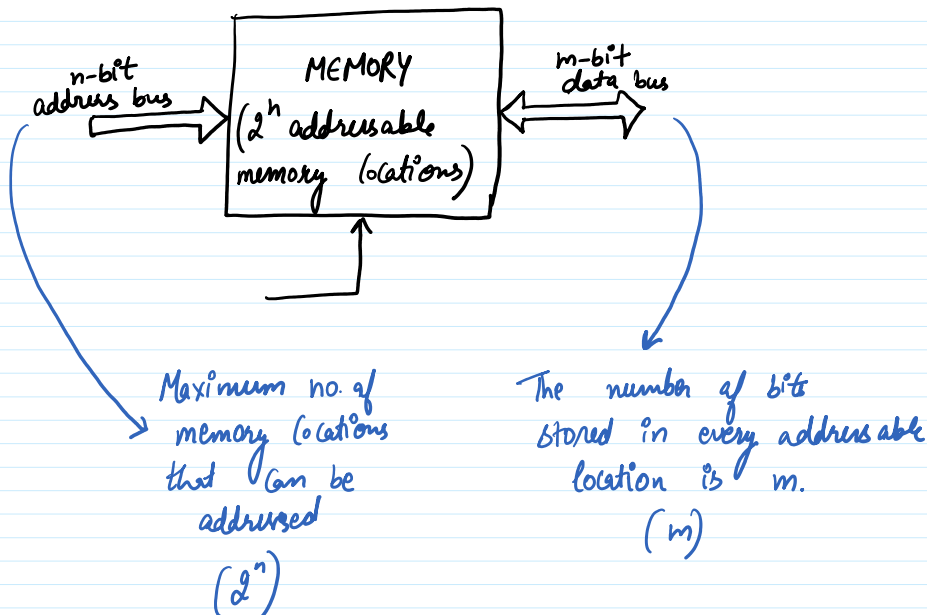 n-bit
address bus
MEMORY
(2ⁿ addressable
memory locations)
m-bit
data bus
Maximum no. of
memory locations
that can be
addressed
(2ⁿ)
The number of bits
stored in every addressable
location is m.
(m)